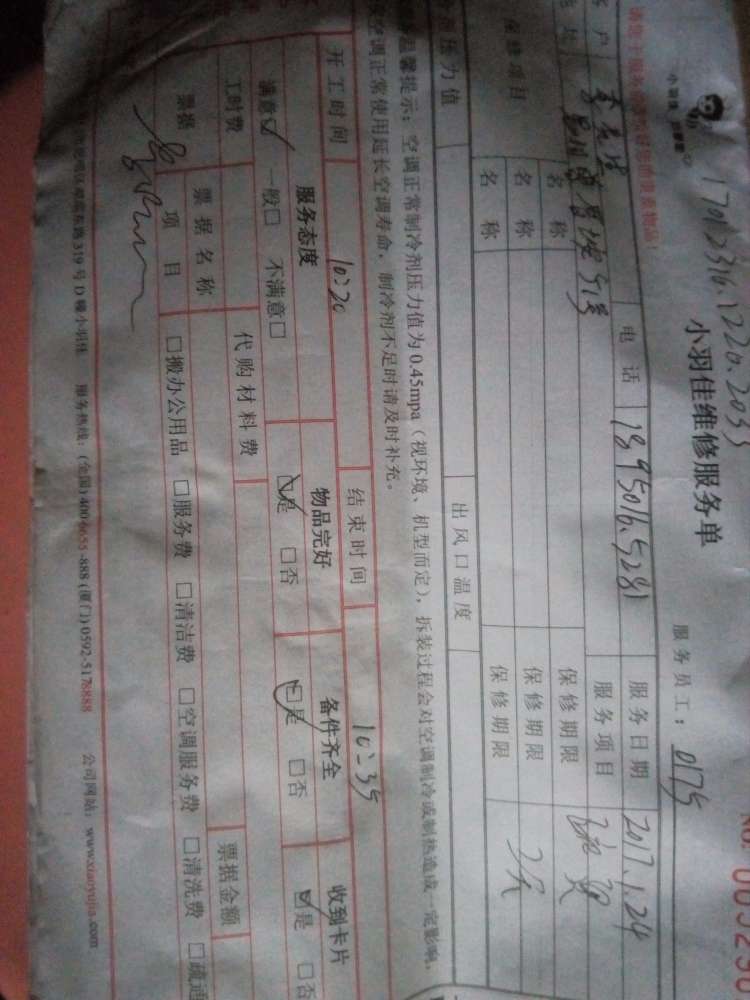 17012316.1220.2033
小羽佳维修服务单
服务员工: 0175
客户
电话 13950165281
服务日期 2017.1.24
服务项目
保修项目
名称
保修期限
名称
保修期限
名称
保修期限
压力值
出风口温度
温馨提示:空调正常制冷剂压力值为0.45mpa(视环境、机型而定),拆装过程会对空调制冷或制热造成一定影响,
空调正常使用延长空调寿命,制冷剂不足时请及时补充。
开工时间 10:20
结束时间 10:35
服务态度
物品完好
备件齐全
收到卡片
满意☑ 一般□ 不满意□
☑是 □否
☑是 □否
☑是 □否
工时费
代购材料费
票据金额
票据
票据名称
项目
□搬办公用品 □服务费 □清洁费 □空调服务费 □清洗费 □疏通
319号D幢小羽佳 服务热线:(全国)4006655-888(厦门)0592-5178888 公司网站:www.xiaoyujia.com